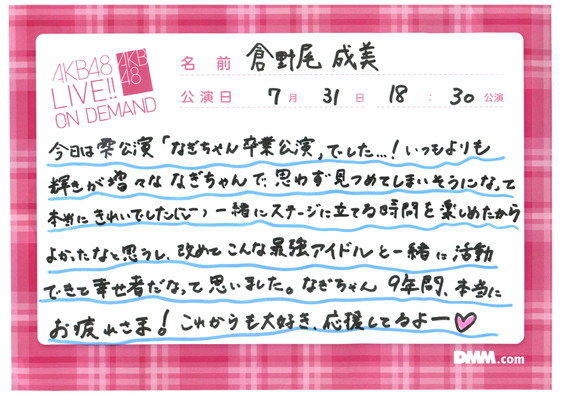 AKB48
LIVE!!
ON DEMAND
AKB
48
名前 倉野尾 成美
公演日 7月 31日 18:30公演
今日は雫公演「なぎちゃん卒業公演」でした...！いつもよりも
輝きが増々ななぎちゃんで思わず見つめてしまいそうになって
本当にきれいでした 一緒にステージに立てる時間を楽しめたから
よかったなと思うし、改めてこんな最強アイドルと一緒に活動
できて幸せ者だなって思いました。なぎちゃん 9年間、本当に
お疲れさま！これからも大好き、応援してるよー♡
DMM.com